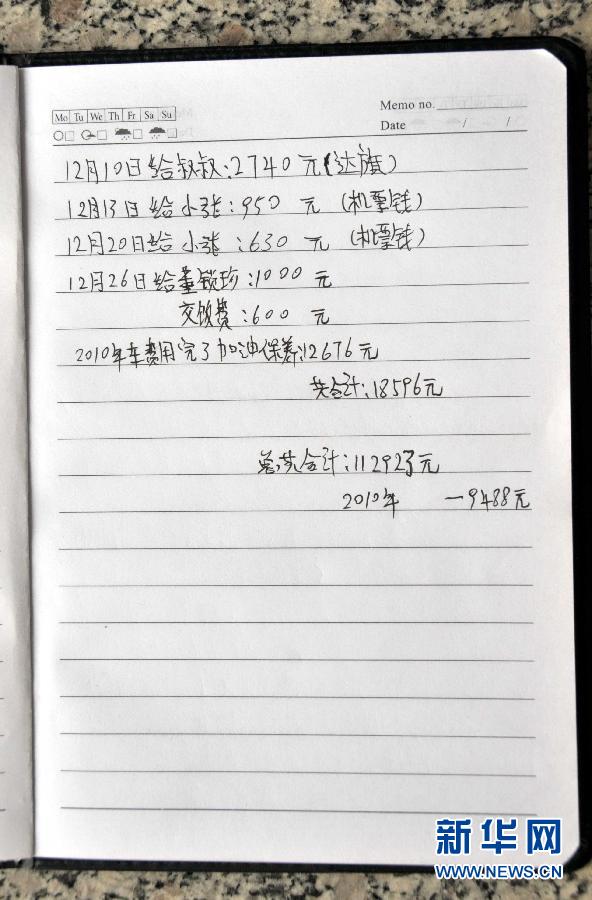 Mo Tu We Th Fr Sa Su
Memo no.
Date / /
12月10日给叔叔:2740元(达旗)
12月13日给小张:950元(机票钱)
12月20日给小张:630元(机票钱)
12月26日给董锁珍:1000元
交饭费:600元
2010年车费用完了加油保养:12676元
共合计:18596元
总共合计:112923元
2010年 一9488元
新华网
WWW.NEWS.CN